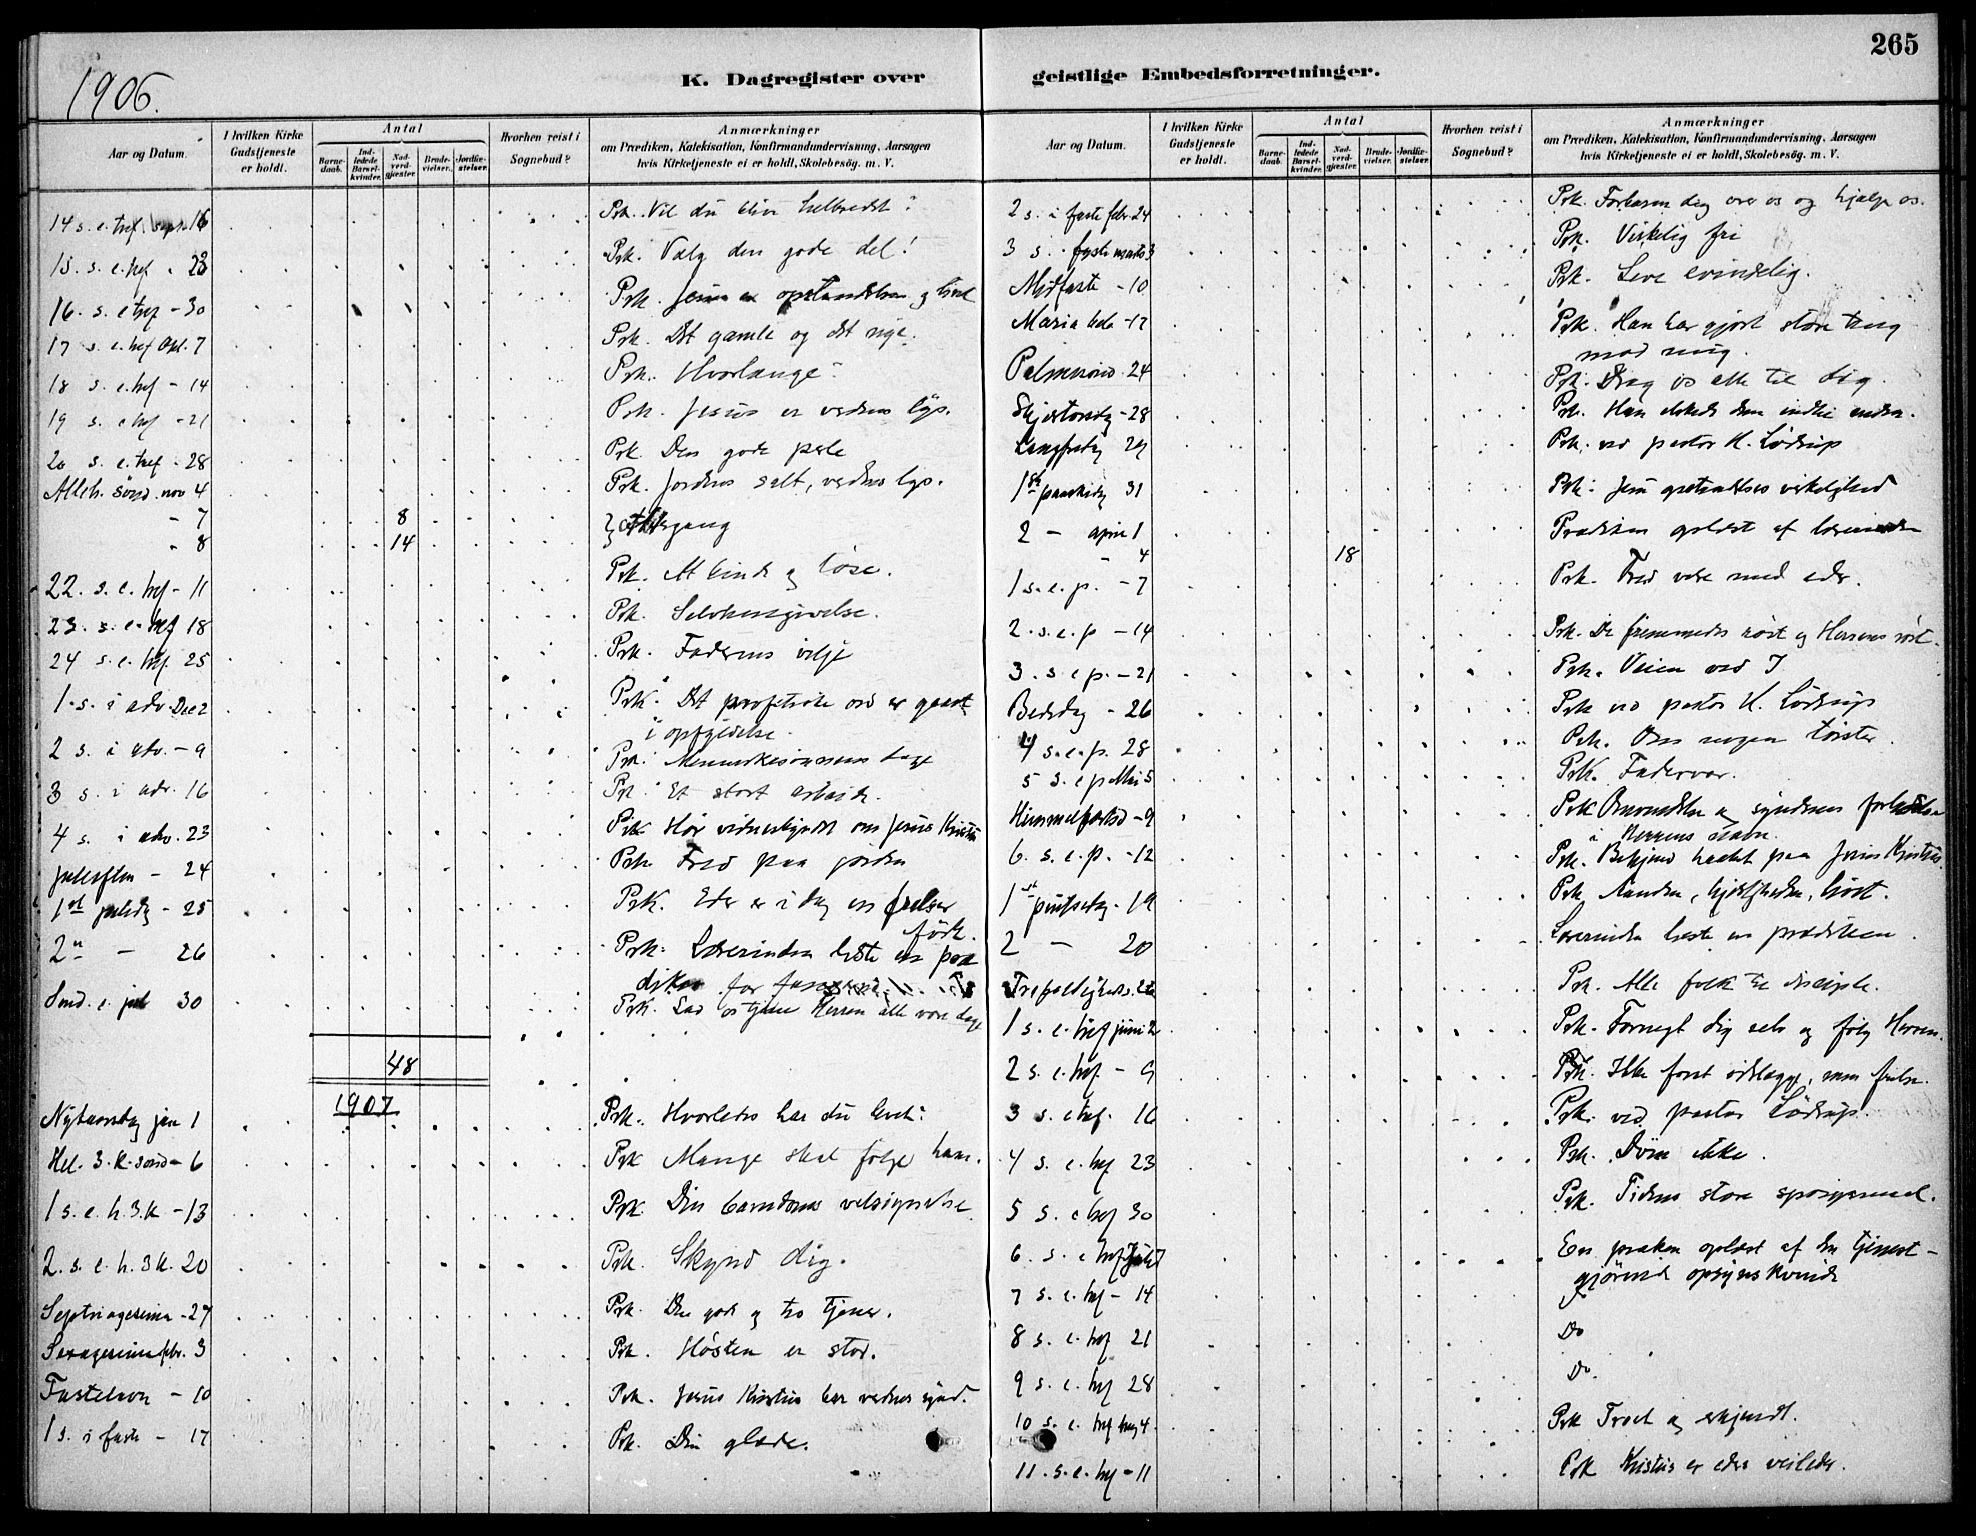 265
1906.
K. Dagregister over geistlige Embedsforretninger.
Aar og Datum.
I hvilken Kirke Gudstjeneste er holdt.
Antal
Barne-daab.
Ind-ledede Barsel-kvinder.
Nad-verd-gjæster.
Brude-vielser.
Jordfæ-stelser.
Hvorhen reist i Sognebud?
Anmærkninger
om Prædiken, Katekisation, Konfirmandundervisning, Aarsagen
hvis Kirketjeneste ei er holdt, Skolebesøg. m. V.
14 s. e. tref. sept. 16 Prk. Vil du blive helbredt?
15. s. e. tref. 23 Prk. Vælg den gode del!
16. s. e tref - 30 Prk. Jesus er opstandelsen og livet
17 s. e. tref Okt. 7 Prk. Det gamle og det nye.
18 s. e. tref - 14 Prk. Hvorlænge
19 s. e tref - 21 Prk. Jesus er verdens lys.
20 s. e. tref - 28 Prk. Den gode perle
Alleh. sönd. nov 4 Prk. Jordens salt, verdens lys.
- 7 8 } altergang
- 8 14
22. s. e. tref - 11 Prk. At binde og løse.
23. s. e. tref 18 Prk. Selvhengivelse.
24 s. e. tref. 25 Prk. Faderens vilje
1. s. i adv. Dec 2 Prk. Det profetiske ord er gaaet
i opfyldelse.
2 s. i adv. - 9 Prk. Menneskesønnens dage
3 s. i adv. 16 Prk. Et stort arbeide.
4 s. i adv. 23 Prk Hör vidnesbyrdet om Jesus Kristus
Juleaften - 24 Prk Fred paa jorden
1st juledag - 25 Prk. Eder er i dag en frelser
født.
2n - 26 Prk. Lærerinden læste en præ
diken for fangerne
Sönd. e. jul 30 Prk. Lad os tjene Herren alle vore dage
48
1907
Nytaarsdag jan 1 Prk. Hvorledes har du levet?
Hel. 3. k. sönd - 6 Prk Mange skal følge ham.
1 s. e. h. 3. k - 13 Prk. Din barndoms velsignelse
2. s. e. h. 3 k. 20 Prk. Skynd dig.
Septuagesima - 27 Prk. Den gode og tro tjener.
Sexagesima febr. 3 Prk. Høsten er stor.
Fastelavn - 10 Prk. Jesus Kristus bar verdens synd.
1 s. i faste - 17 Prk. Din glæde.
Aar og Datum.
I hvilken Kirke Gudstjeneste er holdt.
Antal
Barne-daab.
Ind-ledede Barsel-kvinder.
Nad-verd-gjæster.
Brude-vielser.
Jordfæ-stelser.
Hvorhen reist i Sognebud?
Anmærkninger
om Prædiken, Katekisation, Konfirmandundervisning, Aarsagen
hvis Kirketjeneste ei er holdt, Skolebesög. m. V.
2 s. i faste febr 24 Prk. Forbarm dig over os og hjælp os.
3 s. i faste marts 3 Prk. Virkelig fri
Midfaste - 10 Prk. Leve evindelig.
Maria beb. - 17 Prk. Han har gjort store ting
mod mig.
Palmesönd. 24 Prk. Drag os alle til dig.
Skjærtorsdg - 28 Prk. Han elskede dem indtil enden.
Langfredg 29 Prk. ved pastor H. Lødrup
1ste paaskedg 31 Prk. Jesu opstandelses virkelighed
2 - april 1 Prædiken oplæst af lærerinden
- 4 18
1 s. e. p. - 7 Prk. Fred være med eder.
2. s. e. p - 14 Prk. De fremmedes röst og Herrens röst.
3. s. e p. - 21 Prk. Veien ved I
Bededag - 26 Prk ved pastor H. Lødrup
4 s. e. p. 28 Prk. Om nogen tørster.
5 s. e p Mai 5 Prk. Fadervor.
Himmelfartsd - 9 Prk Omvendelse og syndernes forladelse
i Herrens navn.
6. s. e. p. - 12 Prk. Bekjend haabet paa Jesus Kristus
1st pintsedg - 19 Prk Aanden, kjærligheden, livet.
2 - 20 Lærerinden læste en prædiken.
Trefoldigheds. 26 Prk. Alle folk til disciple.
1 s. e. tref juni 2 Prk. Fornegt dig selv og følg Herren.
2 s. e. tref - 9 Prk. Ikke for at ödelægge, men frelse.
3 s. e tref. 16 Prk. ved pastor Lødrup.
4 s. e. tref 23 Prk. Døm ikke.
5 s. e tref 30 Prk. Tidens store spørgsmaal.
6. s. e tref Juli 7 En præken oplæst af en tjenest-
gjørende opsynskvinde
7 s. e. tref - 14
8 s. e. tref 21 Do
9 s. e. tref 28 Do.
10 s. e. tref aug 4. Prk Troet og erkjendt.
11. s. e. tref - 11 Prk Kristus er eders veileder.